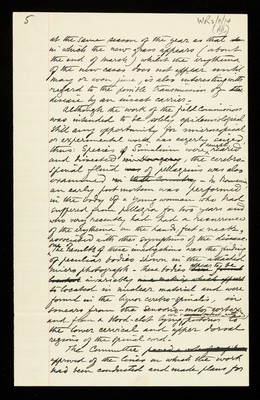 5
at the same season of the year as that in
in which the new grass appears (about
the end of March) whilst the erythema
of the new cases does not appear until
May or even June, is also interesting with
regard to the possible transmission of the
disease by an insect carrier.
Although the work of the Field Commission
was intended to be solely epidemiological
still any opportunity for microscopical
or experimental work was eagerly seized
thus, Species of Simulium were collected
and dissected, the cerebro-
spinal fluid of pellagrins was also
examined & a human
an early post-mortem was performed
in the body of a young woman who had
suffered from pellagra for two years and
who very recently had had a recurrence
of the erythema on the hands, feet & neck,
associated with other symptoms of the disease.
The result of these investigations was the finding
of peculiar bodies shown in the attached
micro photograph. These bodies
invariably
located in nuclear material and were
found in the liquor cerebro-spinalis, in
smears from the sensori-motor cortex
and from a blood-clot
the lower cervical and upper dorsal
regions of the spinal cord.
The Committee
approved of the lines on which the work
had been conducted and made plans for